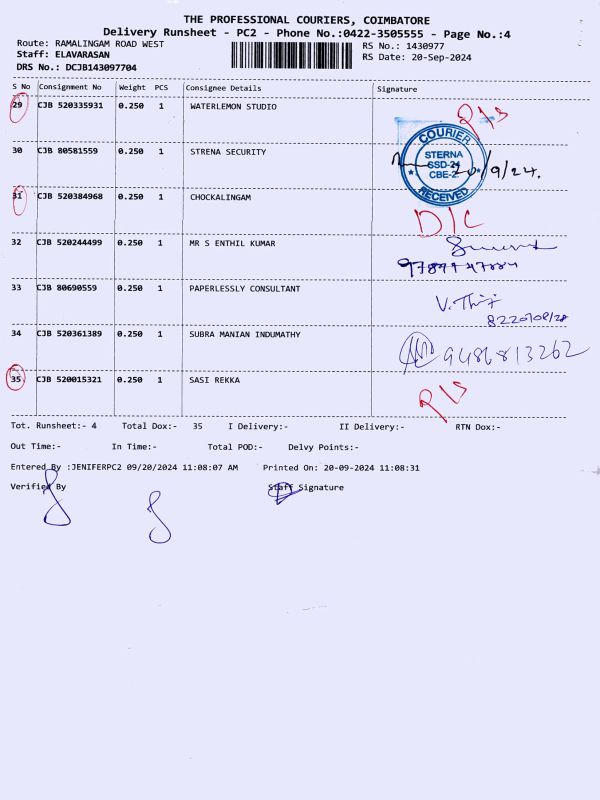 THE PROFESSIONAL COURIERS, COIMBATORE
Delivery Runsheet - PC2 - Phone No.:0422-3505555 - Page No.:4
Route: RAMALINGAM ROAD WEST RS No.: 1430977
Staff: ELAVARASAN RS Date: 20-Sep-2024
DRS No.: DCJB143097704
S No Consignment No Weight PCS Consignee Details Signature
29 CJB 520335931 0.250 1 WATERLEMON STUDIO
COURIER
30 CJB 80581559 0.250 1 STRENA SECURITY STERNA
SSD-24
CBE-2 20/9/24.
RECEIVED
31 CJB 520384968 0.250 1 CHOCKALINGAM D/C
32 CJB 520244499 0.250 1 MR S ENTHIL KUMAR
33 CJB 80690559 0.250 1 PAPERLESSLY CONSULTANT
34 CJB 520361389 0.250 1 SUBRA MANIAN INDUMATHY 9486813262
35 CJB 520015321 0.250 1 SASI REKKA
Tot. Runsheet:- 4 Total Dox:- 35 I Delivery:- II Delivery:- RTN Dox:-
Out Time:- In Time:- Total POD:- Delvy Points:-
Entered By :JENIFERPC2 09/20/2024 11:08:07 AM Printed On: 20-09-2024 11:08:31
Verified By Staff Signature